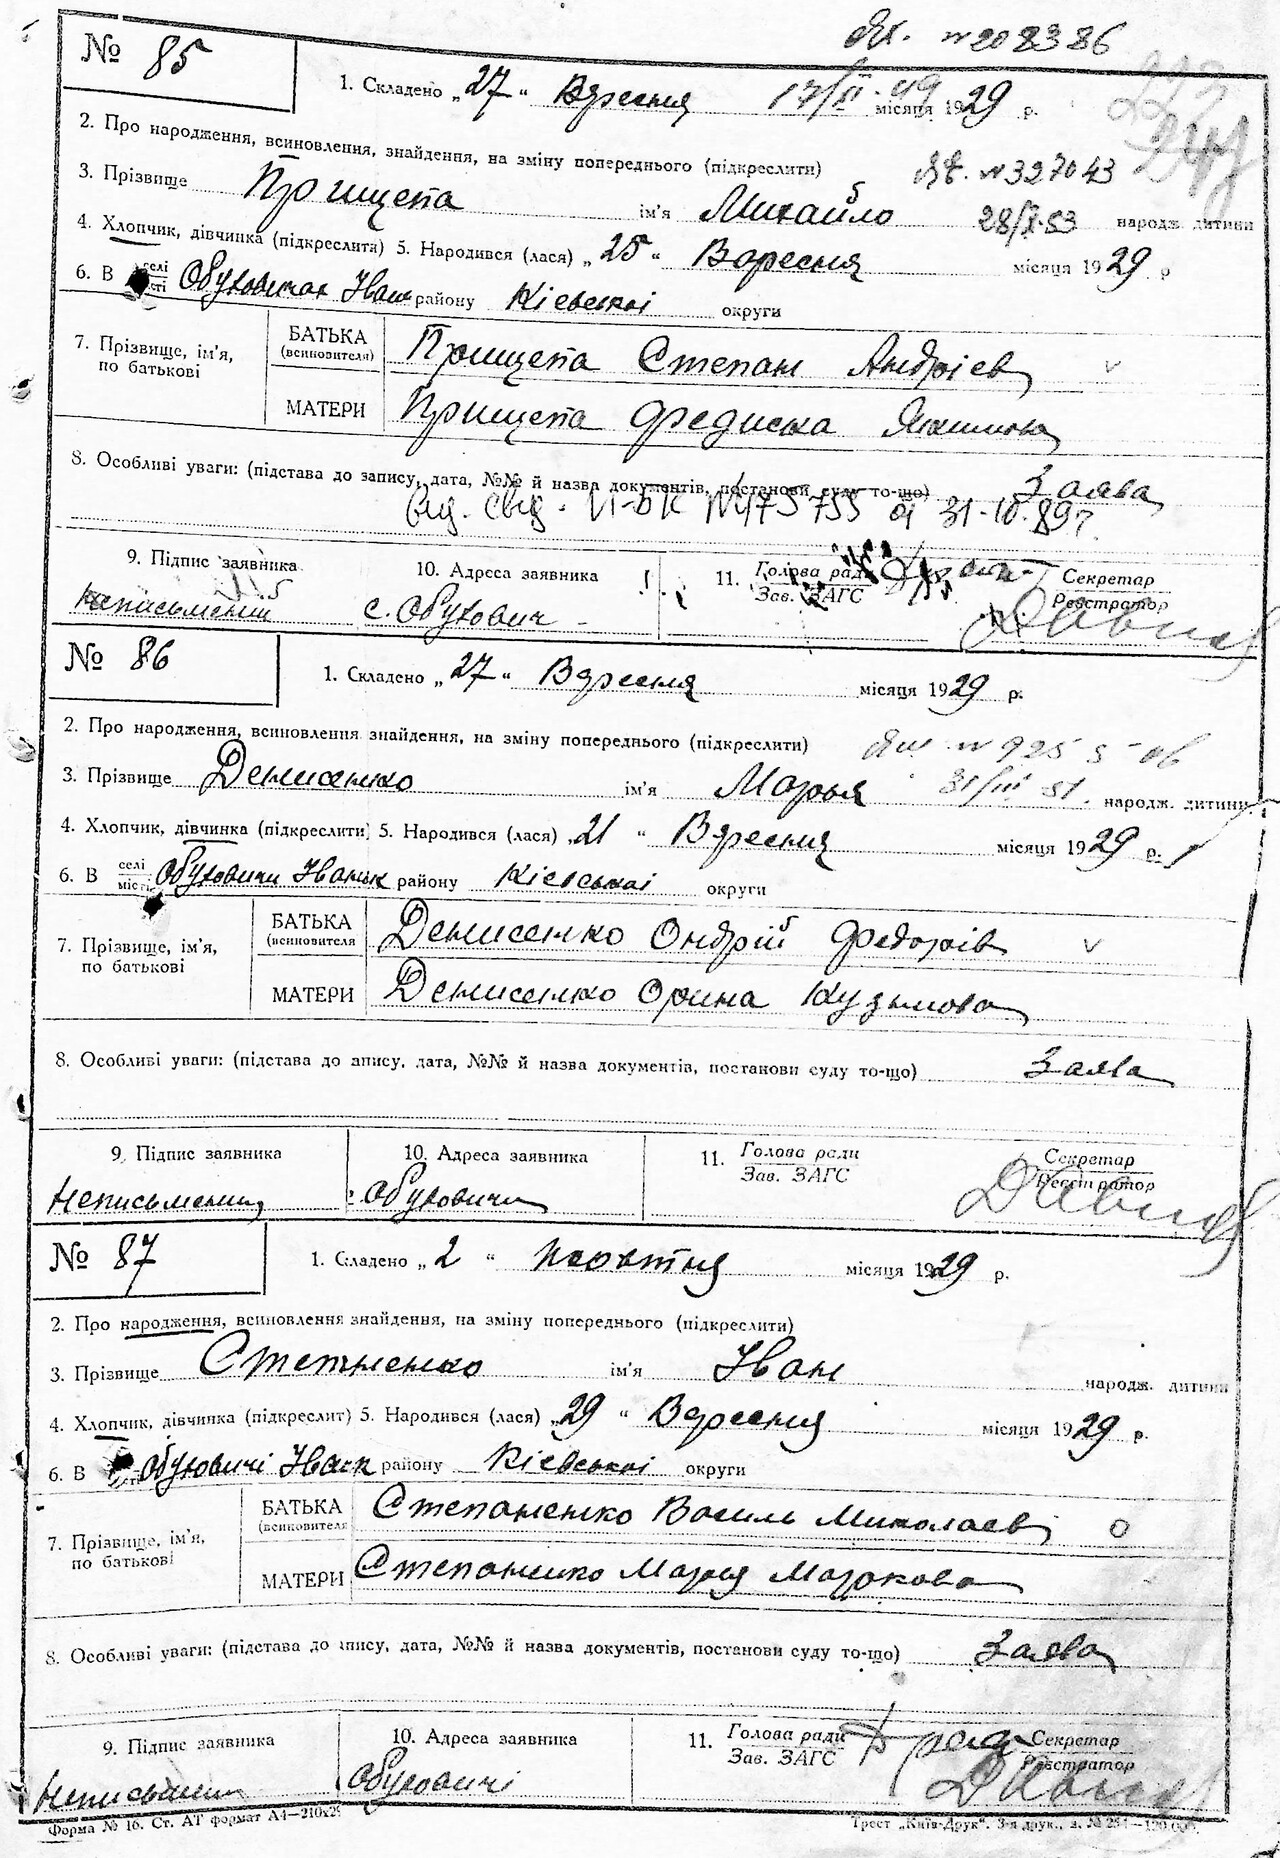 № 85
№ 208386
1. Складено „27“ Вересня місяця 1929 р.
17/II-49
2. Про народження, всиновлення, знайдення, на зміну попереднього (підкреслити)
№ 327043
3. Прізвище Прищепа ім'я Михайло народж. дитини
28/X-53
4. Хлопчик, дівчинка (підкреслити) 5. Народився (лася) „25“ Вересня місяця 1929 р
6. В селі Іван району Кієвськоі округи
7. Прізвище, ім'я, по батькові
БАТЬКА (всиновителя) Прищепа Степан Андріев
МАТЕРИ Прищепа Якимова
8. Особливі уваги: (підстава до запису, дата, №№ й назва документів, постанови суду то-що) Заява
вид. свид. VI-БК №475755 от 31-10-89г.
9. Підпис заявника 10. Адреса заявника 11. Голова ради Секретар
Зав. ЗАГС Реєстратор
неписьмений с. Обухович
№ 86
1. Складено „27“ Вересня місяця 1929 р.
2. Про народження, всиновлення знайдення, на зміну попереднього (підкреслити)
3. Прізвище Денисенко ім'я Марья народж. дитини
31/III 51.
4. Хлопчик, дівчинка (підкреслити) 5. Народився (лася) „21“ Вересня місяця 1929 р.
6. В селі місті Обуховичи Іванк району Кієвськоі округи
7. Прізвище, ім'я, по батькові
БАТЬКА (всиновителя Денисенко Ондрій Федорів
МАТЕРИ Денисенко Орина Кузьмова
8. Особливі уваги: (підстава до апису, дата, №№ й назва документів, постанови суду то-що) Заява
9. Підпис заявника 10. Адреса заявника 11. Голова ради Секретар
Зав. ЗАГС
Обуховичи
№ 87
1. Складено „2“ Жовтня місяця 1929 р.
2. Про народження, всиновлення знайдення, на зміну попереднього (підкреслити)
3. Прізвище ім'я Іван народж. дитини
4. Хлопчик, дівчинка (підкреслит) 5. Народився (лася) „29“ Вересня місяця 1929 р.
6. В Обуховичі Іванк району Кієвськоі округи
7. Прізвище, ім'я, по батькові
БАТЬКА (всиновителя Степаненко Василь Миколаєв
МАТЕРИ Степаненко Марія Маркова
8. Особливі уваги: (підстава до апису, дата, №№ й назва документів, постанови суду то-що) Заява
9. Підпис заявника 10. Адреса заявника 11. Голова ради Секретар
Зав. ЗАГС Реєстратор
Обуховичі
Форма № 16. Ст. АТ формат А4—210х29 Трест „Київ-Друк“. 3-я друк., з. № 254—120.000.